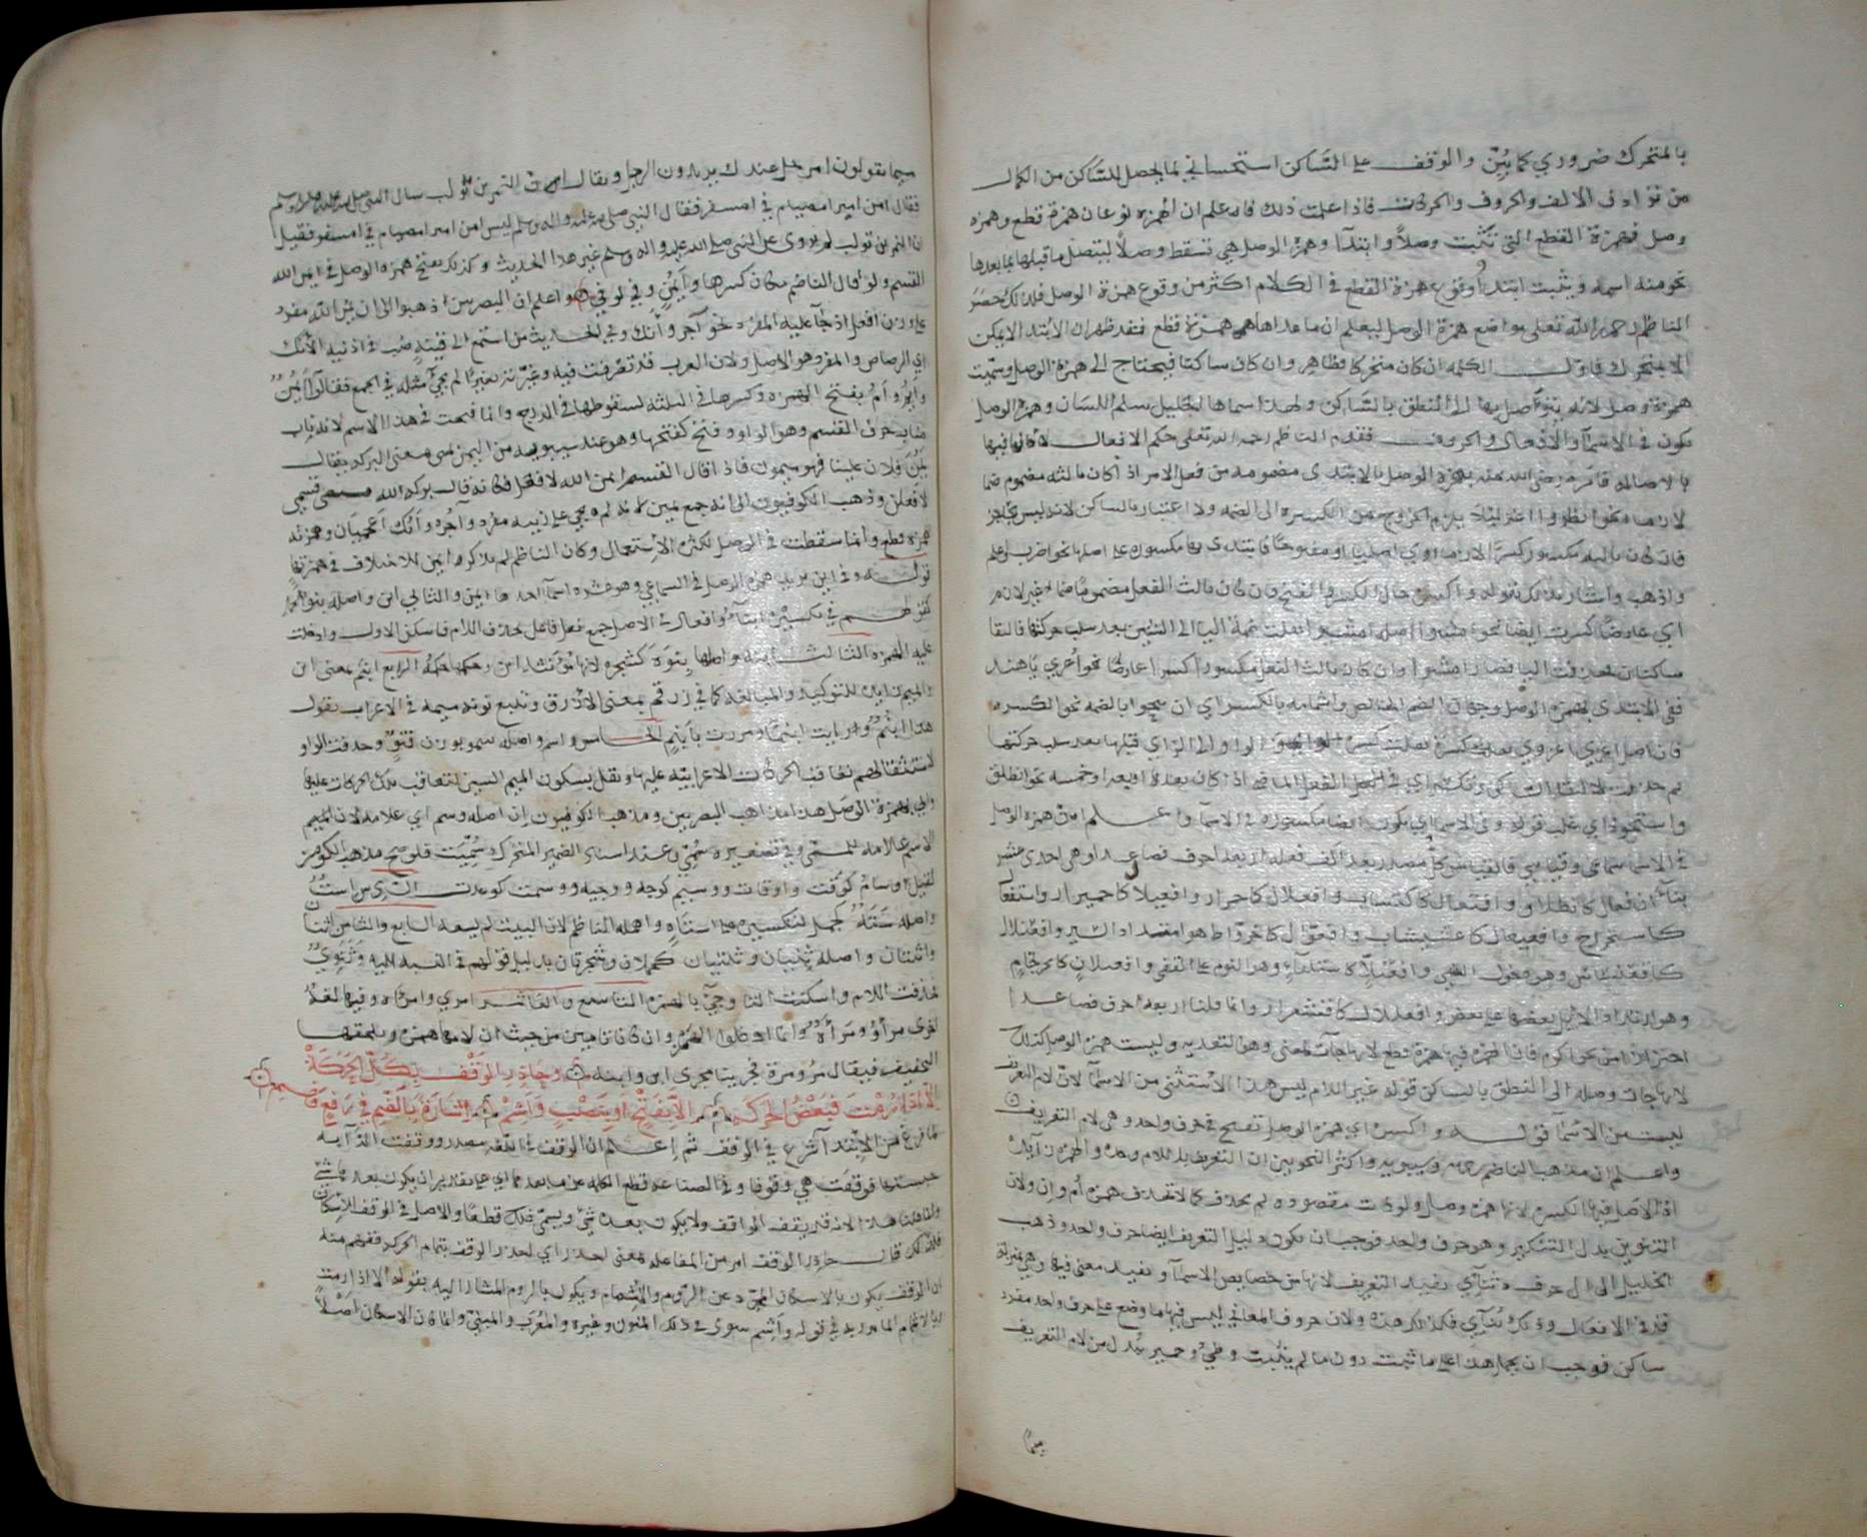 بالمتحرك ضروري كما بين والوقف على الساكن استحساني لما يحصل للساكن من الكلال
من تواد في الالف والحروف والحركات فاذا علمت ذلك فاعلم ان الهمزه نوعان همزة قطع وهمزه
وصل فهمزة القطع التي تثبت وصلاً وابتدآ وهمزة الوصل هي تسقط وصلاً ليتصل ما قبلها بما بعدها
نحو منه اسمه ويثبت ابتدأ وقوع همزة القطع في الكلام اكثر من وقوع همزة الوصل فلذلك حصر
الناظم رحمه الله تعلى مواضع همزة الوصل ليعلم ان ما عداها همزة قطع فنقد ظهر ان الابتدا لا يمكن
الا بمتحرك فاول الكلمه ان كان متحركا فظاهر وان كان ساكنا فيحتاج الى همزة الوصل وسميت
همزة وصل لانه يتوصل بها الى النطق بالساكن ولهذا سماها الخليل سلم اللسان وهمزة الوصل
تكون في الاسمآ والافعال والحروف فقدم الناظم رحمه الله تعلى حكم الافعال لانها فيها
بالاصالة فامر رضي الله عنه بهمزة الوصل بالابتدى مضمومه من فعل الامر اذا كان ثالثه مضموم ضما
لازما نحو انظر واغز ليلا يلزم الخروج من الكسره الى الضمه ولا اعتبار بالساكن لانه ليس بحاجز
فان كان ثالثه مكسورا كسرًا لازما او اصليا او مفتوحًا فابتدى بها مكسوره على اصلها نحو اضرب اعلم
واذهب واشار بذلك بقوله واكسره حال الكسر والفتح وان كان ثالث الفعل مضمومًا ضما غير لازم
اي عارضًا كسرت ايضا نحو امشوا اصله امشيوا نقلت ضمة اليا الى الشين بعد سلب حركتها فالتقا
ساكنان فحذفت اليا فصار امشوا وان كان ثالث الفعل مكسورا كسرا عارضًا نحو اغزي يا هند
ففي الابتدى بهمزة الوصل وجهان الضم الخالص واشمامه بالكسر اي ان تنحوا بالضمه نحو الكسره
فان اصل اغزي اغزوي نقلت كسرة الواو الى الزاي قبلها بعد سلب حركتها
ثم حذفت لالتقا الساكنين وتكسر اي في الفعل الماضي اذا كان بعدها اربعه او خمسه نحو انطلق
واستخرج اي غلب قوله وفي الاسما اي يكون ايضا مكسوره في الاسمآ واعلم ان همزة الوصل
في الاسما سماعي وقياسي فالقياس كل مصدر بعد الف فعله اربعة احرف فصاعدا وهي احدى عشر
بنآء انفعال كانطلاق وافتعال كاكتساب وافعلال كاحمرار وافعيلال كاحميرار واستفعال
كاستخراج وافعيعال كاعشيشاب وافعوال كاخرواط هو امتداد السير وافعنلال
كاقعنساس وهو دخول الظهر وافعنلاء كاستلقاء وهو النوم على القفى وافعنلال كاحرنجام
وهو ارتداد الابل بعضها على بعض وافعلال كاقشعرار وانما قلنا اربعة احرف فصاعدا
احترازا من نحو اكرم فان الهمزه فيها همزة قطع لانها جآت لمعنى وهو التعديه وليست همزة الوصل كذلك
لانها جات وصله الى النطق بالساكن قوله غير اللام ليس هذا الاستثنى من الاسمآ لان لام التعريف
ليست من الاسمآ قوله واكسره اي همزة الوصل تفتح في حرف واحد وهي لام التعريف
واعلم ان مذهب الناظم رحمه وسيبويه واكثر النحويين ان التعريف باللام وحده والهمزه زايدة
اذ الاصل فيها الكسر لانها همزة وصل ولو كانت مقصوده لم تحذف كما لا تحذف همزة أم وان ولان
التنوين يدل التنكير وهو حرف واحد فوجب ان يكون دليل التعريف ايضا حرف واحد وذهب
الخليل الى ال حرف ثنائي يفيد التعريف لانها من خصايص الاسمآ ويفيد معنى فيها وهي بمنزلة
قد في الافعال وتلك ثنآئي فكذلك هذه ولان حروف المعاني ليس فيها ما وضع على حرف واحد مفرد
ساكن فوجب ان يحمل هذا على ما ثبت دون ما لم يثبت وطيء وحمير تبدل من لام التعريف
ميمًا
ميما يقولون امرجل عندك يريدون الرجل ويقال ان النمر بن تولب سال النبي صلى الله عليه واله وسلم
فقال امن امبر امصيام في امسفر فقال النبي صلى الله عليه واله وسلم ليس من امبر امصيام في امسفر فقيل
ان النمر بن تولب لم يروى عن النبي صلى الله عليه واله وسلم غير هذا الحديث وكذلك يفتح همزة الوصل في ايمن الله
القسم ولو قال الناظم مكان كسرها وايمن وفي لوفي واعلم ان البصريين اذهبوا الى ان ايمن الله مفرد
على وزن افعل اذ جآ عليه المفرد نحو آجر وآنك وفي الحديث من استمع الى قينة صب في اذنيه الآنك
اي الرصاص والمفرد هو الاصل ولان العرب قد تصرفت فيه وغيرته تغييرًا لم يجئ مثله في الجمع فقالوا ايمن
وايم وام بفتح الهمزه وكسرها في الثلثه لسقوطها في الدرج وانما فتحت في هذا الاسم لانه ناب
مناب حرف القسم وهو الواو ففتح كفتحها وهو عند سيبويه من اليمن بمعنى البركه يقال
يمن فلان علينا فهو ميمون فاذا قال القسم ايمن الله لافعلن فكانه قال بركة الله قسمي
لافعلن وذهب الكوفيون الى انه جمع يمين لانه لم يجي على زنه مفرد وآجر وآنك اعجميان وهمزته
همزه قطع وانما سقطت في الوصل لكثرة الاستعمال وكان الناظم لم يذكره ايمن للاختلاف في همزتها
قوله وفي ابن يريد همزة الوصل في السماعي وهو عشرة اسمآ احدها ايمن والثاني ابن واصله بنو
لقولهم في تكسيره ابنآء وافعال في الاصل جمع فعل فاعل بحذف اللام فاسكن الاول وادخلت
عليه الهمزه الثالث ابنة واصلها بنوة كشجره لانها مؤنثة ابن وحكمها حكمه الرابع ابنم بمعنى ابن
والميم زايدة للتوكيد والمبالغه كما في زرقم بمعنى الازرق وتتبع نونه ميمه في الاعراب يقول
هذا ابنم ورايت ابنما ومررت بابنم الخامس اسم واصله سمو بوزن قنو وحذفت الواو
لاستثقالهم تعاقب الحركات الاعرابيه عليها ونقل سكون الميم السين لتعاقب تلك الحركات عليها
واتي بهمزة الوصل هذا مذهب البصريين ومذهب الكوفيون ان اصله وسم اي علامه لان الميم
الاسم علامه للمسمى وفي تصغيره سمي وعند اسناد الضمير المتحرك سميت فلو صح مذهب الكوفيين
لقيل اوسام كوقت واوقات ووسيم كوجه ووجيه ووسمت كوعدت السادس است
واصله سته كجمل لتكسيره على استاه واهمله الناظم لان البيت لم يسعه السابع والثامن اثنان
واثنتان واصله ثنيان وثنتيان كجملان وشجرتان بدليل قولهم في النسبه اليه ثنوي
فحذفت اللام واسكنت الثا وجئ بالهمزه التاسع والعاشر امري وامرأه وفيها لغة
اخرى مرأ ومرأة وانما ادخلوا الهمزه وان كانا تامين من حيث ان لامها همزه ويلحقها
التخفيف فيقال مر ومرة فجريتا مجرى ابن وابنه وحاذر الوقف بكل الحركة
الا اذا رمت فبعض الحركه الا بفتح او بنصب واشم اشارة بالضم في رفع وضم
لما فرغ من الابتدآ شرع في الوقف ثم اعلم ان الوقف في اللغه مصدر ووقفت الدآبه
حبستها فوقفت هي وقوفا وفي الصناعه قطع الكلمه عن ما بعدها اي على تقدير ان يكون بعدها شئ
وانما قلنا هذا لانه قد يقف الواقف ولا يكون بعده شئ ويسمى ذلك قطعًا والاصل في الوقف الاسكان
فلذلك قال حاذر الوقف امر من المفاعله بمعنى احذر اي احذر الوقف بتمام الحركه ففهم منه
ان الوقف يكون بالاسكان المجرد عن الروم والاشمام ويكون بالروم المشار اليه بقوله الا اذا رمت
وبالاشمام المامور به في قوله واشم سوى في ذلك المنون وغيره والمعرب والمبني وانما كان الاسكان اصلاً